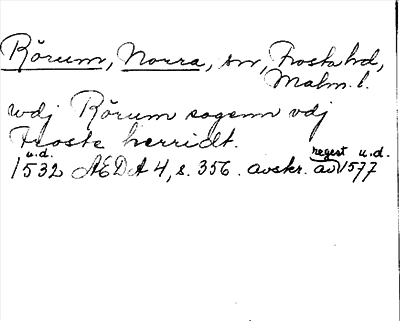 Rörum, Norra, sn, Frosta hd,
Malm. l.
wdj Rörum sogenn vdj
Froste herridt.
u.d.
1532 ÆDA 4, s. 356. avskr. av regest u.d. 1577